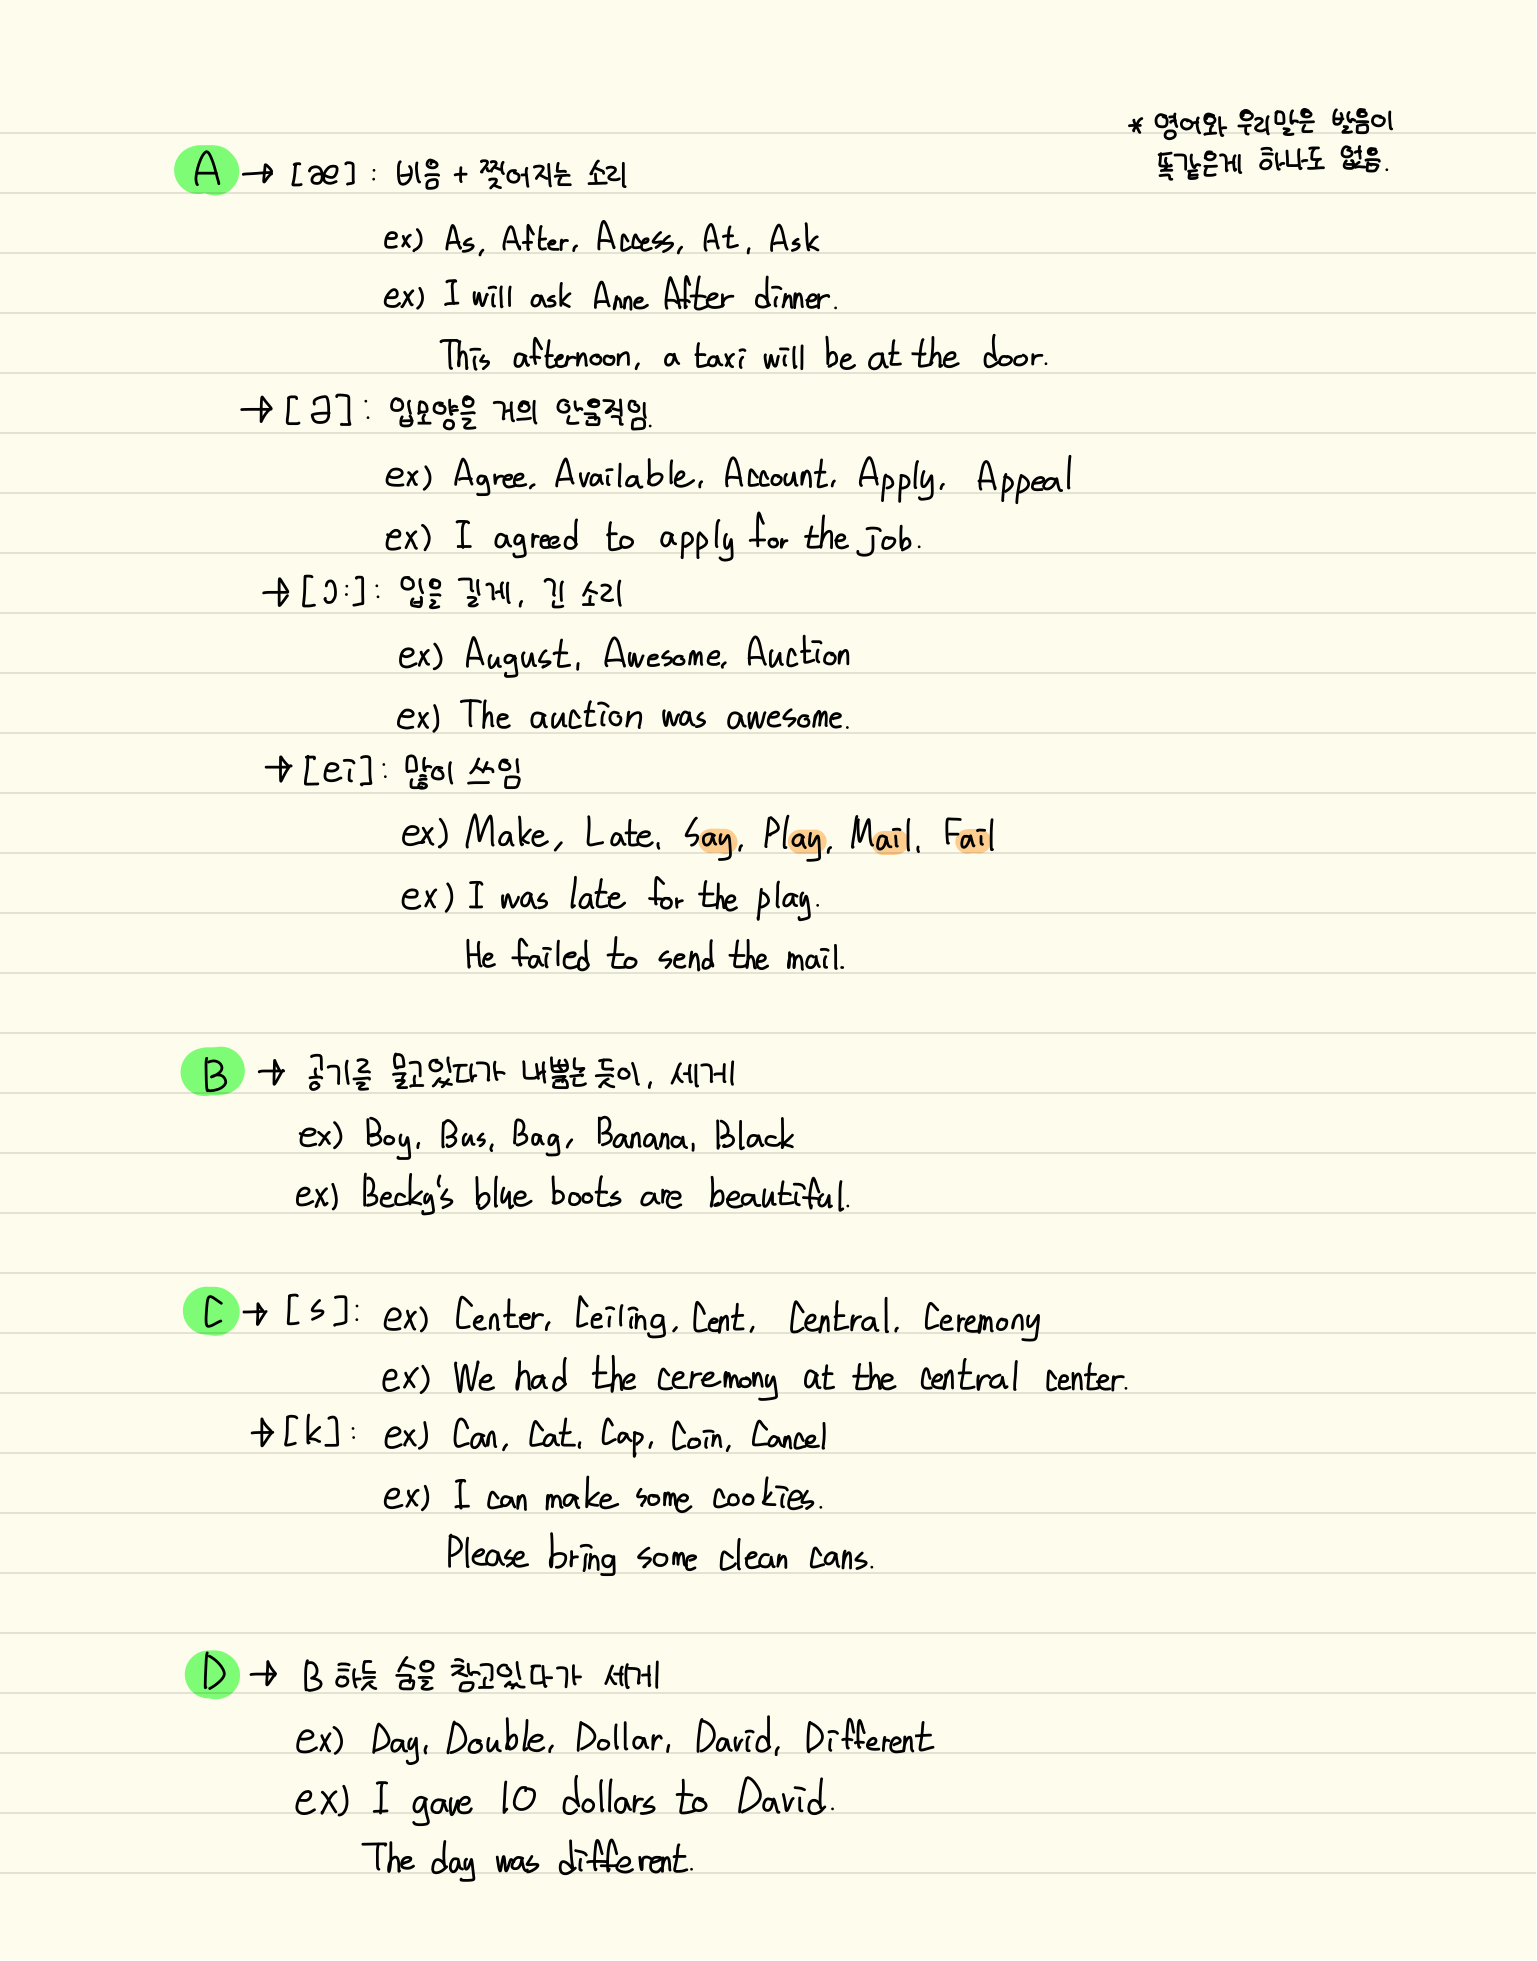 * 영어와 우리말은 발음이
똑같은게 하나도 없음.
A → [æ] : 비음 + 찢어지는 소리
ex) As, After, Access, At, Ask
ex) I will ask Anne After dinner.
This afternoon, a taxi will be at the door.
→ [ə] : 입모양을 거의 안움직임.
ex) Agree, Available, Account, Apply, Appeal
ex) I agreed to apply for the job.
→ [ɔ:] : 입을 길게, 긴 소리
ex) August, Awesome, Auction
ex) The auction was awesome.
→ [ei] : 많이 쓰임
ex) Make, Late, Say, Play, Mail, Fail
ex) I was late for the play.
He failed to send the mail.
B → 공기를 물고있다가 내뿜는듯이, 세게
ex) Boy, Bus, Bag, Banana, Black
ex) Becky's blue boots are beautiful.
C → [s] : ex) Center, Ceiling, Cent, Central, Ceremony
ex) We had the ceremony at the central center.
→ [k] : ex) Can, Cat, Cap, Coin, Cancel
ex) I can make some cookies.
Please bring some clean cans.
D → B 하듯 숨을 참고있다가 세게
ex) Day, Double, Dollar, David, Different
ex) I gave 10 dollars to David.
The day was different.